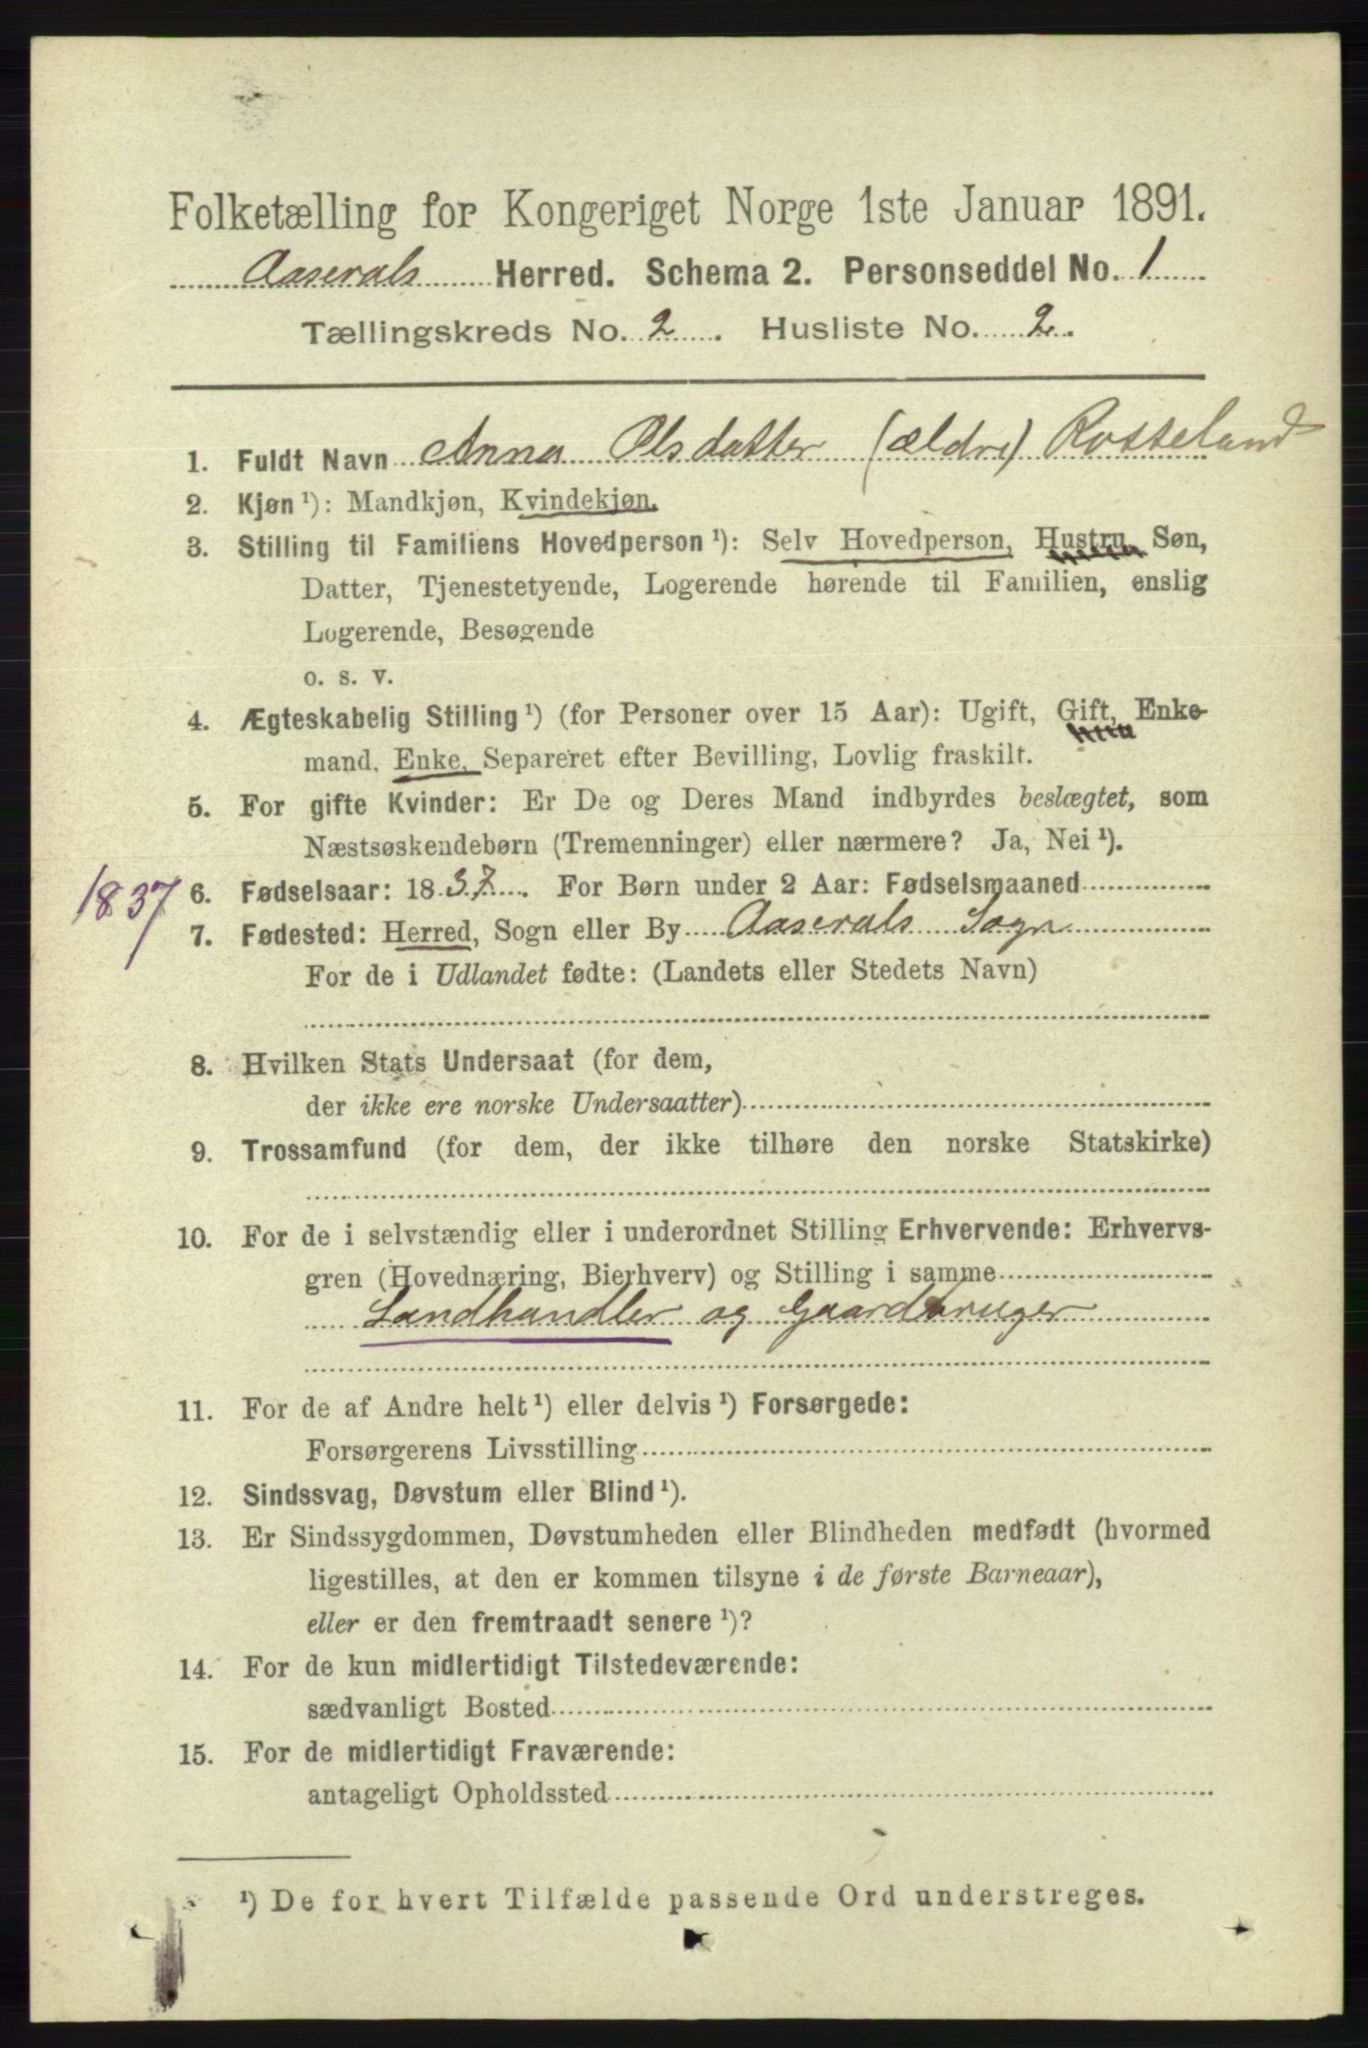 Folketælling for Kongeriget Norge 1ste Januar 1891.
Aaserals Herred. Schema 2. Personseddel No. 1
Tællingskreds No. 2. Husliste No. 2.
1. Fuldt Navn Anna Olsdatter (ældre) Rosseland
2. Kjøn¹): Mandkjøn, Kvindekjøn.
3. Stilling til Familiens Hovedperson¹): Selv Hovedperson, Hustru, Søn,
Datter, Tjenestetyende, Logerende hørende til Familien, enslig
Logerende, Besøgende
o. s. v.
4. Ægteskabelig Stilling¹) (for Personer over 15 Aar): Ugift, Gift, Enke-
mand, Enke, Separeret efter Bevilling, Lovlig fraskilt.
5. For gifte Kvinder: Er De og Deres Mand indbyrdes beslægtet, som
Næstsøskendebørn (Tremenninger) eller nærmere? Ja, Nei¹).
1837
6. Fødselsaar: 1837. For Børn under 2 Aar: Fødselsmaaned
7. Fødested: Herred, Sogn eller By Aaserals Sogn
For de i Udlandet fødte: (Landets eller Stedets Navn)
8. Hvilken Stats Undersaat (for dem,
der ikke ere norske Undersaatter)
9. Trossamfund (for dem, der ikke tilhøre den norske Statskirke)
10. For de i selvstændig eller i underordnet Stilling Erhvervende: Erhvervs-
gren (Hovednæring, Bierhverv) og Stilling i samme
Landhandler og Gaardbruger
11. For de af Andre helt¹) eller delvis¹) Forsørgede:
Forsørgerens Livsstilling
12. Sindssvag, Døvstum eller Blind¹).
13. Er Sindssygdommen, Døvstumheden eller Blindheden medfødt (hvormed
ligestilles, at den er kommen tilsyne i de første Barneaar),
eller er den fremtraadt senere¹)?
14. For de kun midlertidigt Tilstedeværende:
sædvanligt Bosted
15. For de midlertidigt Fraværende:
antageligt Opholdssted
¹) De for hvert Tilfælde passende Ord understreges.